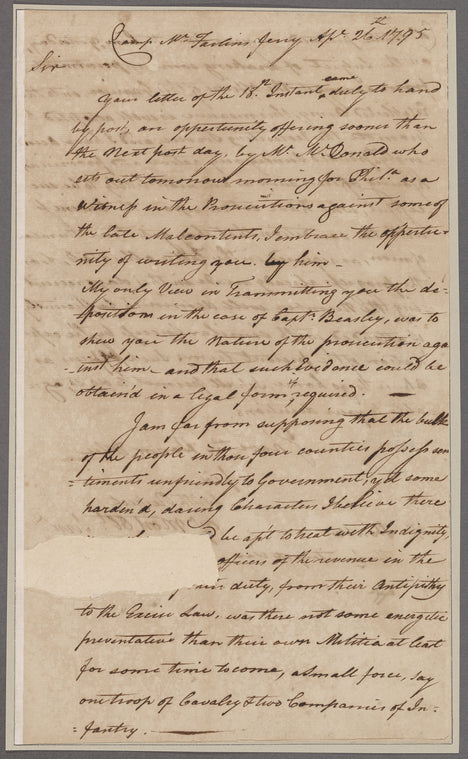 Camp Mc Farlins ferry Apl. 26th 1795
Sir
Your letter of the 18th. Instant came duly to hand
by post, an opportunity offering sooner than
the Next post day, by Mr. Mc.Donald who
sets out tomorrow morning for Phila. as a
Witness in the Prosecutions against some of
the late Malcontents, I embrace the opportu-
nity of writing you by him —
My only View in Transmitting you the de-
-positions in the case of Capt. Beasley, was to
shew you the Nature of the prosecution aga
-inst him and that such Evidence could be
obtain'd in a legal form if required. —
I am far from supposing that the bulk
of the people in those four counties possess sen
-timents unfriendly to Government, yet some
harden'd, daring Characters I believe there
be apt to treat with Indignity,
officers of the revenue in the
duty, from their Antipithy
to the Excise Law, was there not some energetic
preventative than their own Militia at least
for some time to come, a Small force, Say
one troop of Cavalry & two Companies of In-
-fantry. —